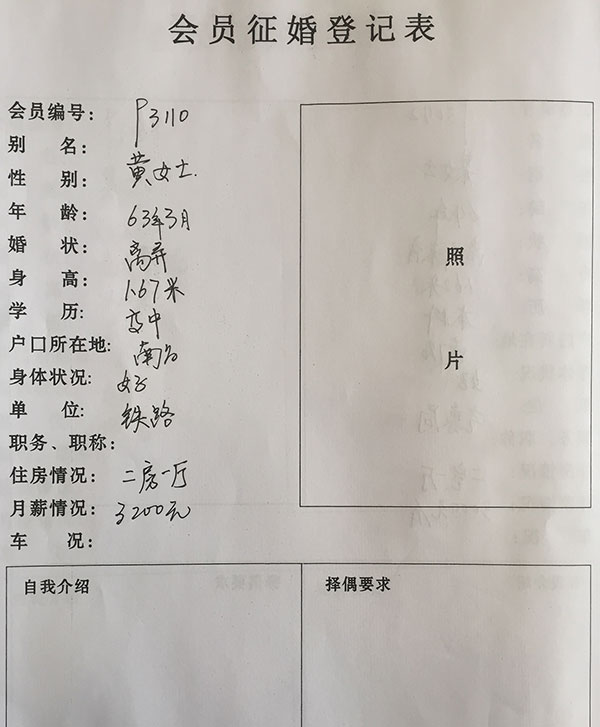 会员征婚登记表
会员编号: P3110
别 名:
性 别: 黄女士.
年 龄: 63年3月
婚 状: 离异
身 高: 1.67米
学 历: 高中
户口所在地: 南昌
身体状况: 好
单 位: 铁路
职务、职称:
住房情况: 二房一厅
月薪情况: 3200元
车 况:
照
片
自我介绍
择偶要求